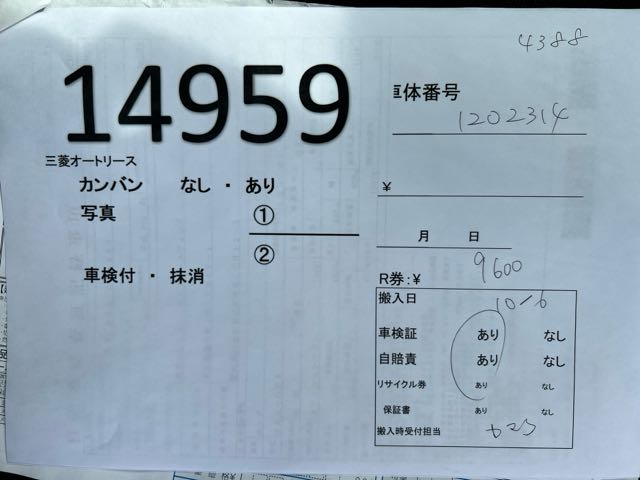 4388
14959
車体番号
1202314
三菱オートリース
カンバン なし ・ あり
¥
写真 ①
②
月 日
車検付 ・ 抹消
R券:¥ 9600
搬入日 10/6
車検証 あり なし
自賠責 あり なし
リサイクル券 あり なし
保証書 あり なし
搬入時受付担当